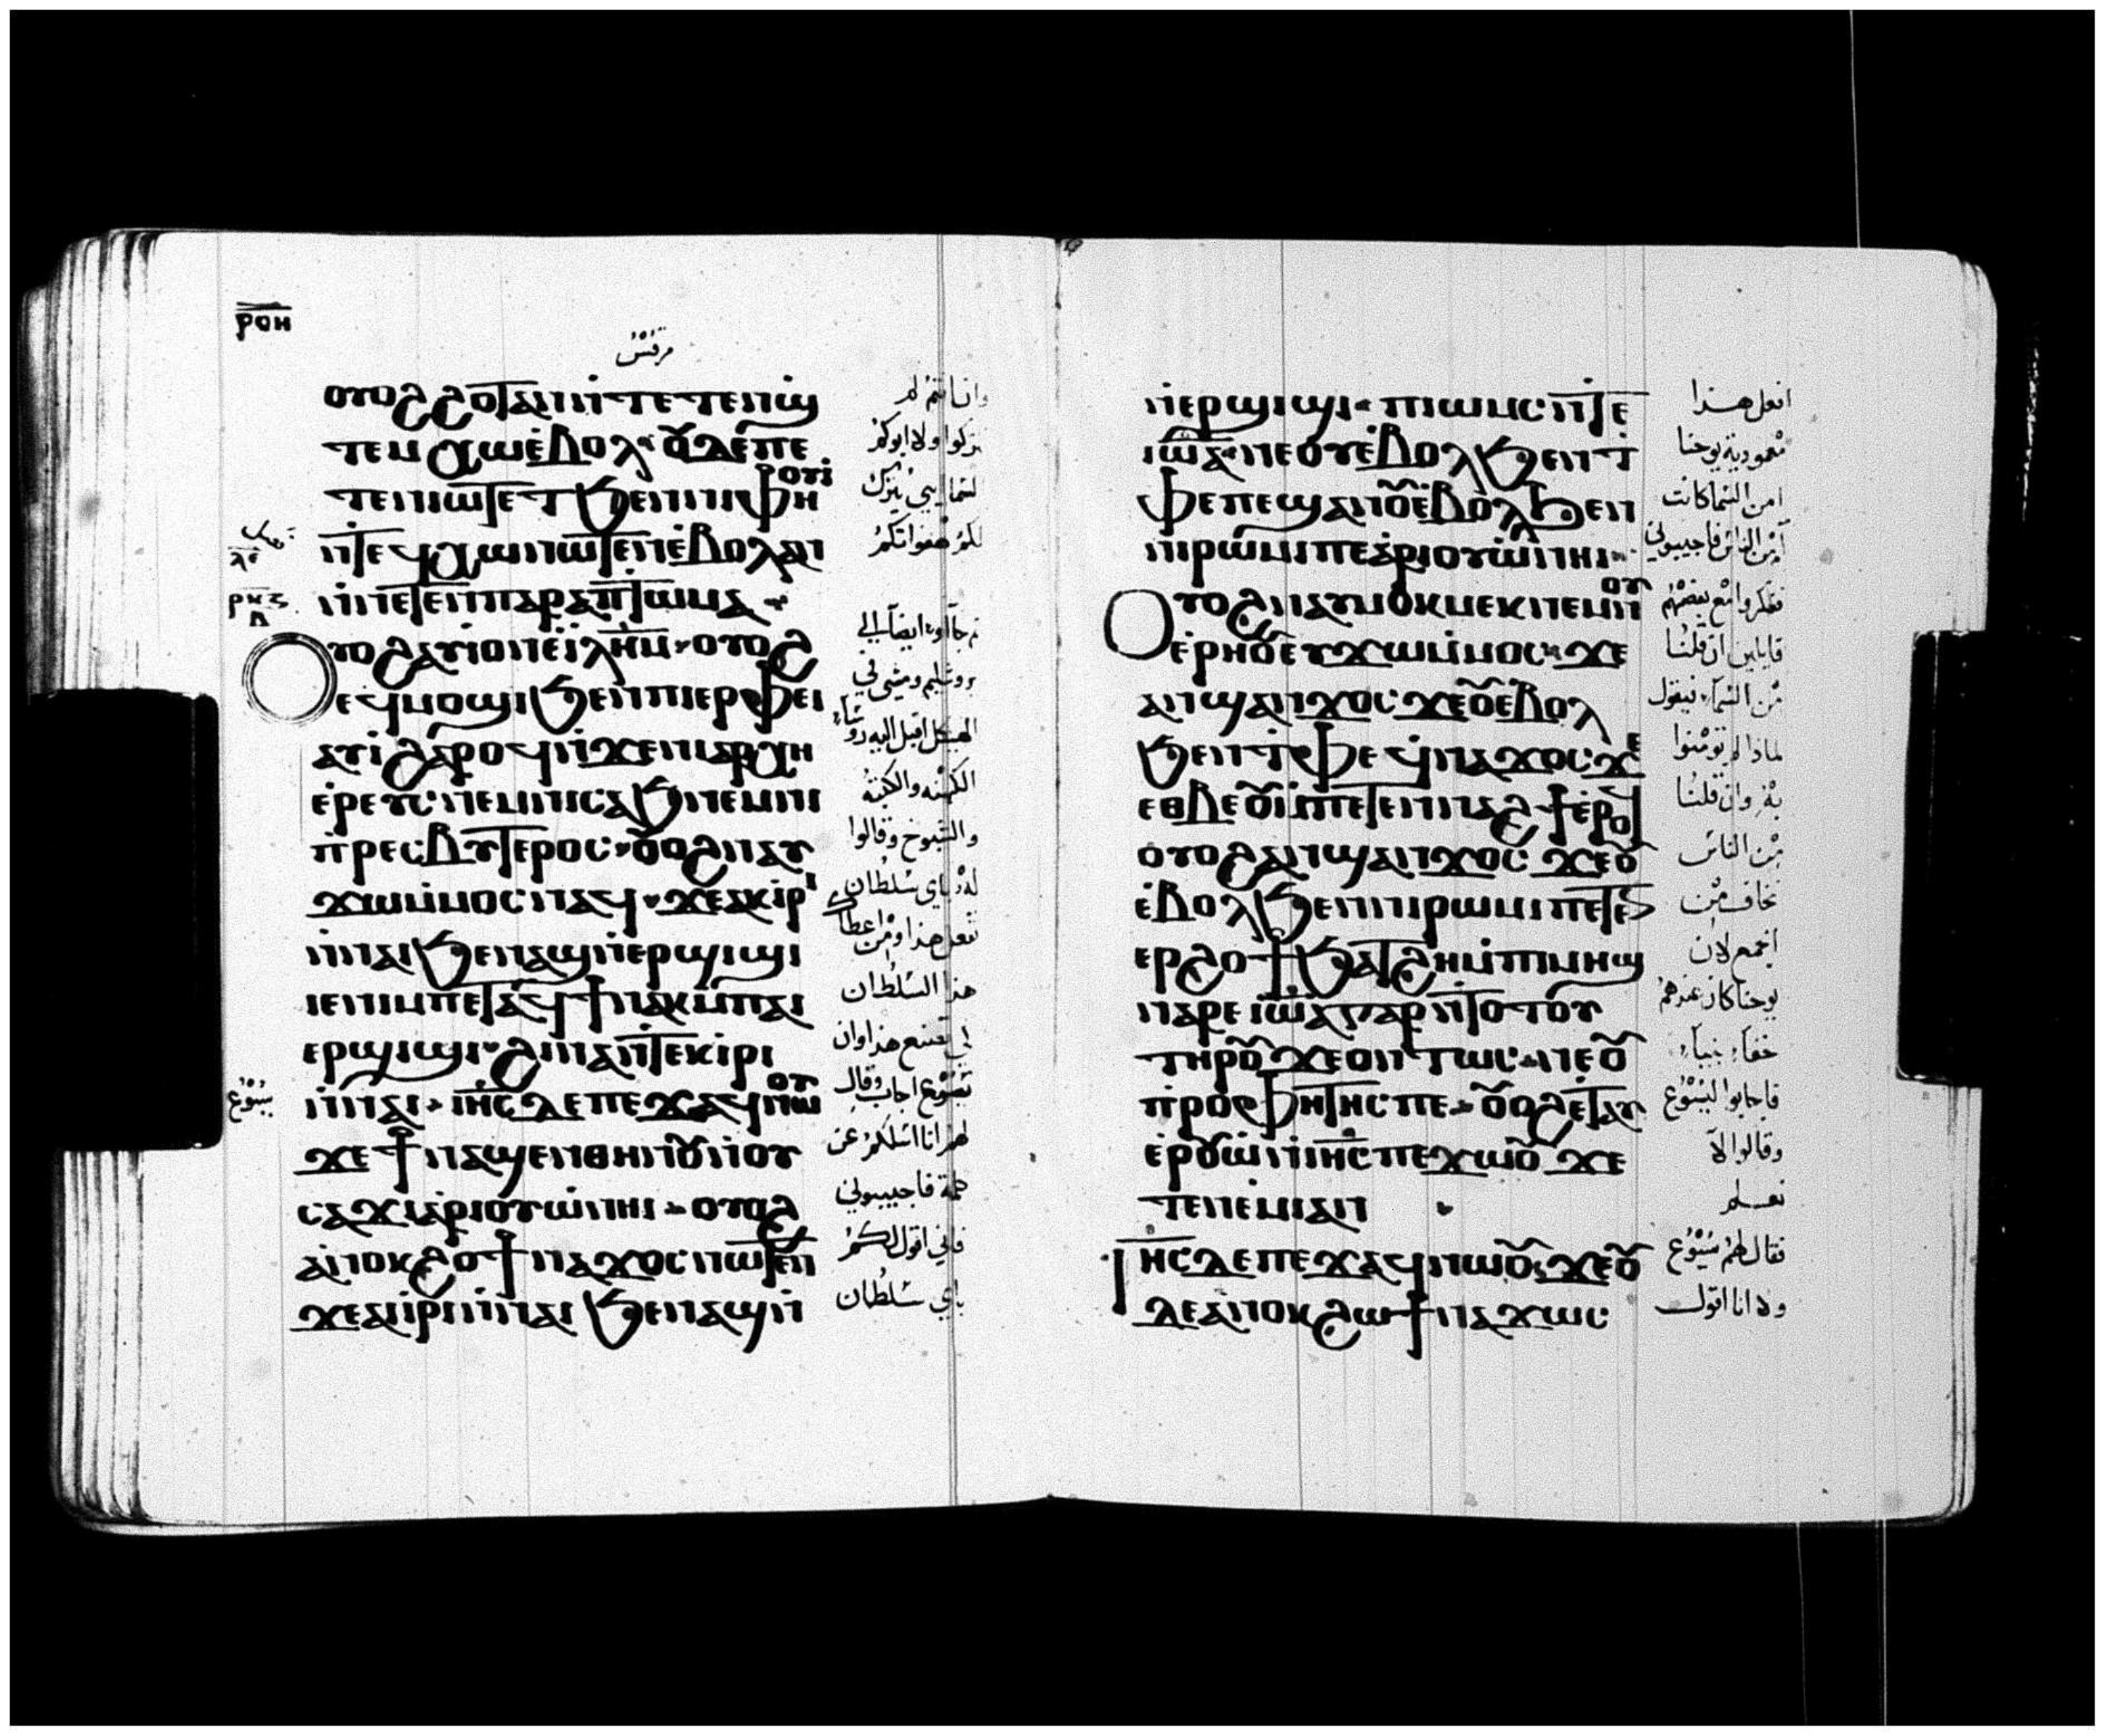 ⲣⲟⲏ
مرقس
ⲟⲩⲟϩ ϩⲟⲧⲁⲛ ⲛ̀ⲧⲉⲧⲉⲛϣ
ⲧⲉⲙⲭⲱ ⲉ̀ⲃⲟⲗ ⲟⲩⲇⲉ ⲡⲉ
ⲧⲉⲛⲓⲱⲧ ⲉⲧϧⲉⲛⲛⲓⲫⲏⲟⲩⲓ̀
ⲛ̀ⲧⲉϥⲭⲱ ⲛⲱⲧⲉⲛ ⲉ̀ⲃⲟⲗ ⲁⲛ
ⲛ̀ⲛⲉⲧⲉⲛⲡⲁⲣⲁⲡⲧⲱⲙⲁ
ⲣⲕⲍ
ⲇ
ⲟⲩⲟϩ ⲁⲩⲓ̀ ⲟⲛ ⲉ̀ⲓ̀ⲗ̅ⲏ̅ⲙ̅ ⲟⲩⲟϩ
ⲉϥⲙⲟϣⲓ ϧⲉⲛⲡⲓⲉⲣⲫⲉⲓ
ⲁⲩⲓ̀ ϩⲁⲣⲟϥ ⲛ̀ϫⲉⲛⲓⲁⲣⲭⲏ
ⲉ̀ⲣⲉⲩⲥ ⲛⲉⲙⲛⲓⲥⲁϧ ⲛⲉⲙⲛⲓ
ⲡ̀ⲣⲉⲥⲃⲩⲧⲉⲣⲟⲥ ⲟⲩⲟϩ ⲛⲁⲩ
ϫⲱ ⲙ̀ⲙⲟⲥ ⲛⲁϥ ϫⲉ ⲁⲕⲓⲣⲓ
ⲛ̀ⲛⲁⲓ ϧⲉⲛⲁϣ ⲛ̀ⲉⲣϣⲓϣⲓ
ⲓⲉ ⲛⲓⲙ ⲡⲉⲧⲁϥϯ ⲛⲁⲕ ⲙ̀ⲡⲁⲓ
ⲉⲣϣⲓϣⲓ ϩⲓⲛⲁ ⲛ̀ⲧⲉⲕⲓⲣⲓ
ⲛ̀ⲛⲁⲓ ⲓ̅ⲏ̅ⲥ̅ ⲇⲉ ⲡⲉϫⲁϥ ⲛⲱⲟⲩ
ϫⲉ ϯⲛⲁϣⲉⲛⲑⲏⲛⲟⲩ ⲛ̀ⲟⲩ
ⲥⲁϫⲓ ⲁⲣⲓⲟⲩⲱ̀ ⲛⲏⲓ ⲟⲩⲟϩ
ⲁⲛⲟⲕ ϩⲟ ϯⲛⲁϫⲟⲥ ⲛⲱⲧⲉⲛ
ϫⲉ ⲁⲓⲣⲓ ⲛ̀ⲛⲁⲓ ϧⲉⲛⲁϣ ⲛ̀
وان انتم لم
تتركوا ولا ابوكم
لكم هفواتكم
الكهنه والكتبه
والشيوخ وقالوا
له باي سلطان
هذا السلطان
يسوع
لهم انا اسلكم عن
كلمة فاجيبوني
فاني اقول لكم
باي سلطان
ⲛ̀ⲉⲣϣⲓϣⲓ ⲡⲓⲱⲙⲥ ⲛ̀ⲧⲉ
ⲓⲱⲁ ⲛⲉ ⲟⲩⲉ̀ⲃⲟⲗ ϧⲉⲛⲧ̀
ⲫⲉ ⲡⲉ ϣⲁⲛ ⲟⲩⲉ̀ⲃⲟⲗ ϧⲉⲛ
ⲛⲓⲣⲱⲙⲓ ⲡⲉ ⲁ̀ⲣⲓⲟⲩⲱ̀ ⲛⲏⲓ
ⲟⲩⲟϩ ⲛⲁⲩⲙⲟⲕⲙⲉⲕ ⲛⲉⲙⲛⲟⲩ
ⲉ̀ⲣⲏⲟⲩ ⲉⲩϫⲱ ⲙ̀ⲙⲟⲥ ϫⲉ
ⲁⲛϣⲁⲛϫⲟⲥ ϫⲉ ⲟⲩⲉ̀ⲃⲟⲗ
ϧⲉⲛⲧ̀ⲫⲉ ϥⲛⲁϫⲟⲥ ϫⲉ
ⲉⲑⲃⲉⲟⲩ ⲙ̀ⲡⲉⲧⲉⲛⲛⲁϩϯ ⲉ̀ⲣⲟϥ
ⲟⲩⲟϩ ⲁⲛϣⲁⲛϫⲟⲥ ϫⲉ ⲟⲩ
ⲉ̀ⲃⲟⲗ ϧⲉⲛⲛⲓⲣⲱⲙⲓ ⲡⲉ ⲧⲉⲛ
ⲉⲣϩⲟϯ ϧⲁⲧϩⲏ ⲙ̀ⲡⲓⲙⲏϣ
ⲛⲁⲣⲉ ⲓⲱⲁ ⲅⲁⲣ ⲛ̀ⲧⲟⲧⲟⲩ
ⲧⲏⲣⲟⲩ ϫⲉ ⲟⲛⲧⲱⲥ ⲛⲉ ⲟⲩ
ⲡ̀ⲣⲟⲫⲏⲧⲏⲥ ⲡⲉ ⲟⲩⲟϩ ⲉ̀ⲧⲁⲩ
ⲉ̀ⲣⲟⲩⲱ̀ ⲛ̀ⲓ̅ⲏ̅ⲥ̅ ⲡⲉϫⲱⲟⲩ ϫⲉ
ⲧⲉⲛⲉ̀ⲙⲓ ⲁⲛ
ⲓ̅ⲏ̅ⲥ̅ ⲇⲉ ⲡⲉϫⲁϥ ⲛⲱⲟⲩ ϫⲉ ⲟⲩ
ⲇⲉ ⲁⲛⲟⲕ ϩⲱ ϯⲛⲁϫⲱⲥ
افعل هذا
معمودية يوحنا
امن السما كانت
ففكروا مع بعضهم
قايلين ان قلنا
من السماء فيقول
لماذا لم تومنوا
به وان قلنا
من الناس
نخاف من
الجمع لان
فاجابوا ليسوع
وقالوا لا
نعلم
فقال لهم يسوع
ولا انا اقول